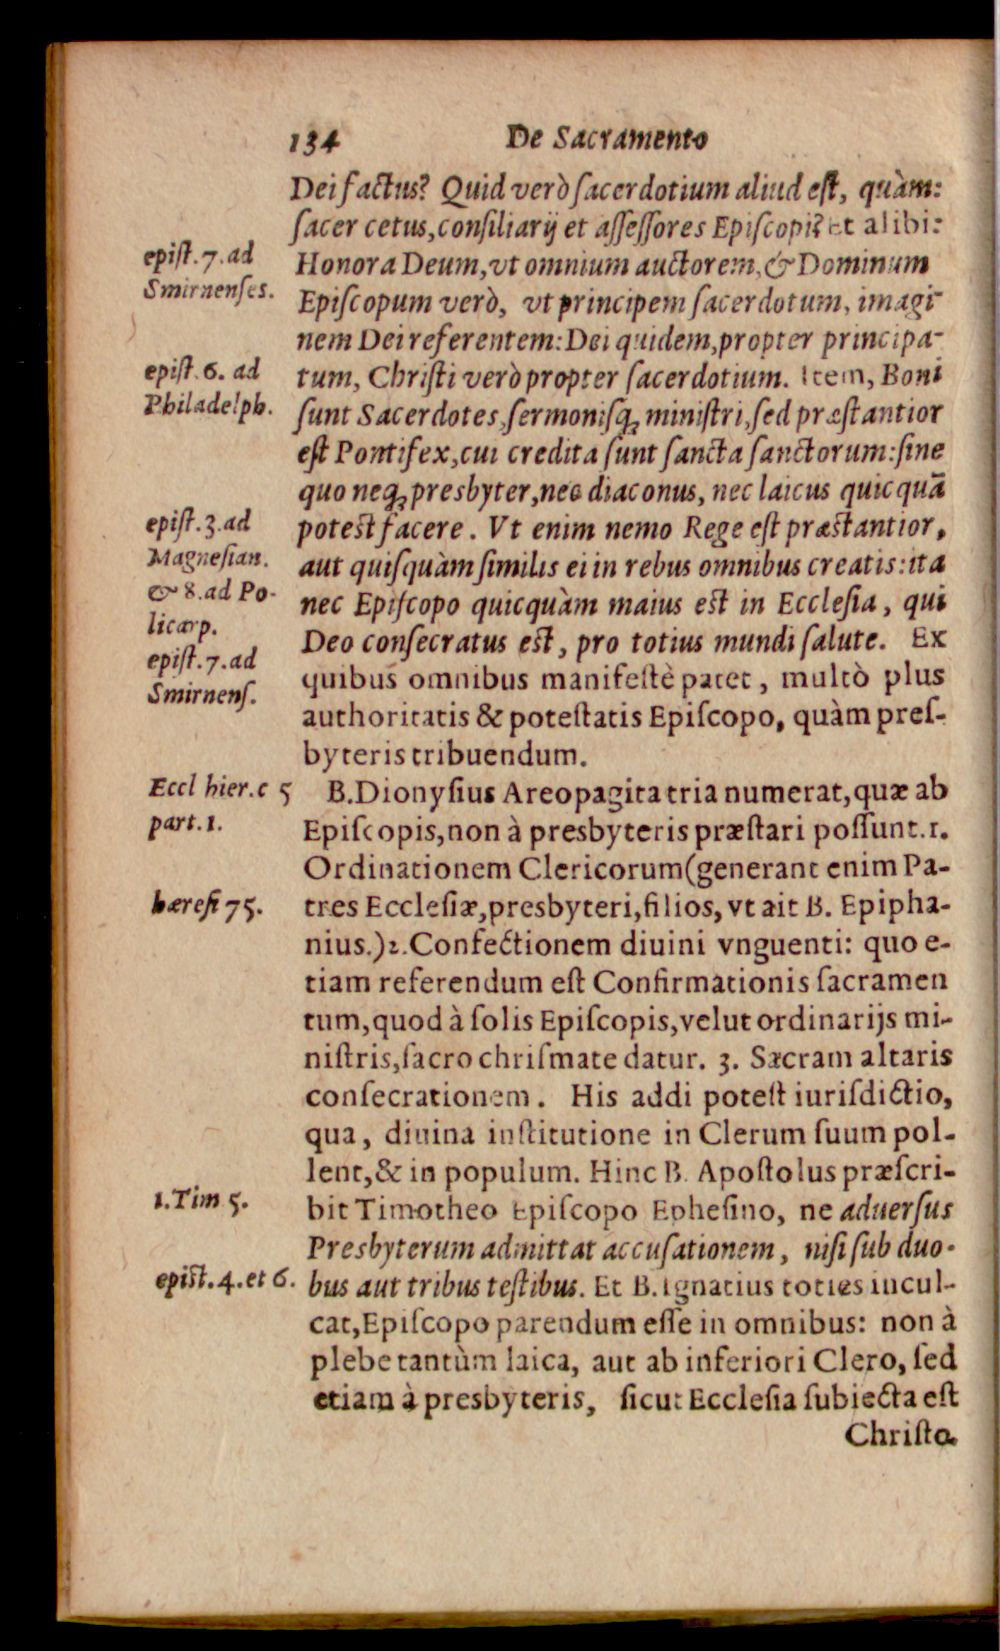 134 De Sacramento
Dei factus? Quid verò sacerdotium aliud est, quàm:
sacer cetus, consiliarij et assessores Episcopi? Et alibi:
epist. 7. ad
Smirnenses.
Honora Deum, vt omnium auctorem, & Dominum
Episcopum verò, vt principem sacerdotum, imagi
nem Dei referentem: Dei quidem, propter principa-
epist. 6. ad
Philadelph.
tum, Christi verò propter sacerdotium. Item, Boni
sunt Sacerdotes, sermonisq; ministri, sed præstantior
est Pontifex, cui credita sunt sancta sanctorum: sine
quo neq; presbyter, nec diaconus, nec laicus quicquā
epist. 3. ad
Magnesian.
& 8. ad Po-
licarp.
potest facere. Vt enim nemo Rege est præstantior,
aut quisquàm similis ei in rebus omnibus creatis: ita
nec Episcopo quicquàm maius est in Ecclesia, qui
Deo consecratus est, pro totius mundi salute. Ex
epist. 7. ad
Smirnens.
quibus omnibus manifestè patet, multò plus
authoritatis & potestatis Episcopo, quàm pres-
byteris tribuendum.
Eccl hier. c 5
part. 1.
B. Dionysius Areopagita tria numerat, quæ ab
Episcopis, non à presbyteris præstari possunt. 1.
Ordinationem Clericorum (generant enim Pa-
hæresi 75.
tres Ecclesiæ, presbyteri, filios, vt ait B. Epipha-
nius.) 2. Confectionem diuini vnguenti: quo e-
tiam referendum est Confirmationis sacramen
tum, quod à solis Episcopis, velut ordinarijs mi-
nistris, sacro chrismate datur. 3. Sacram altaris
consecrationem. His addi potest iurisdictio,
qua, diuina institutione in Clerum suum pol-
lent, & in populum. Hinc B. Apostolus præscri-
1. Tim 5.
bit Timotheo Episcopo Ephesino, ne aduersus
Presbyterum admittat accusationem, nisi sub duo-
epist. 4. et 6.
bus aut tribus testibus. Et B. Ignatius toties incul-
cat, Episcopo parendum esse in omnibus: non à
plebe tantùm laica, aut ab inferiori Clero, sed
etiam à presbyteris, sicut Ecclesia subiecta est
Christo.